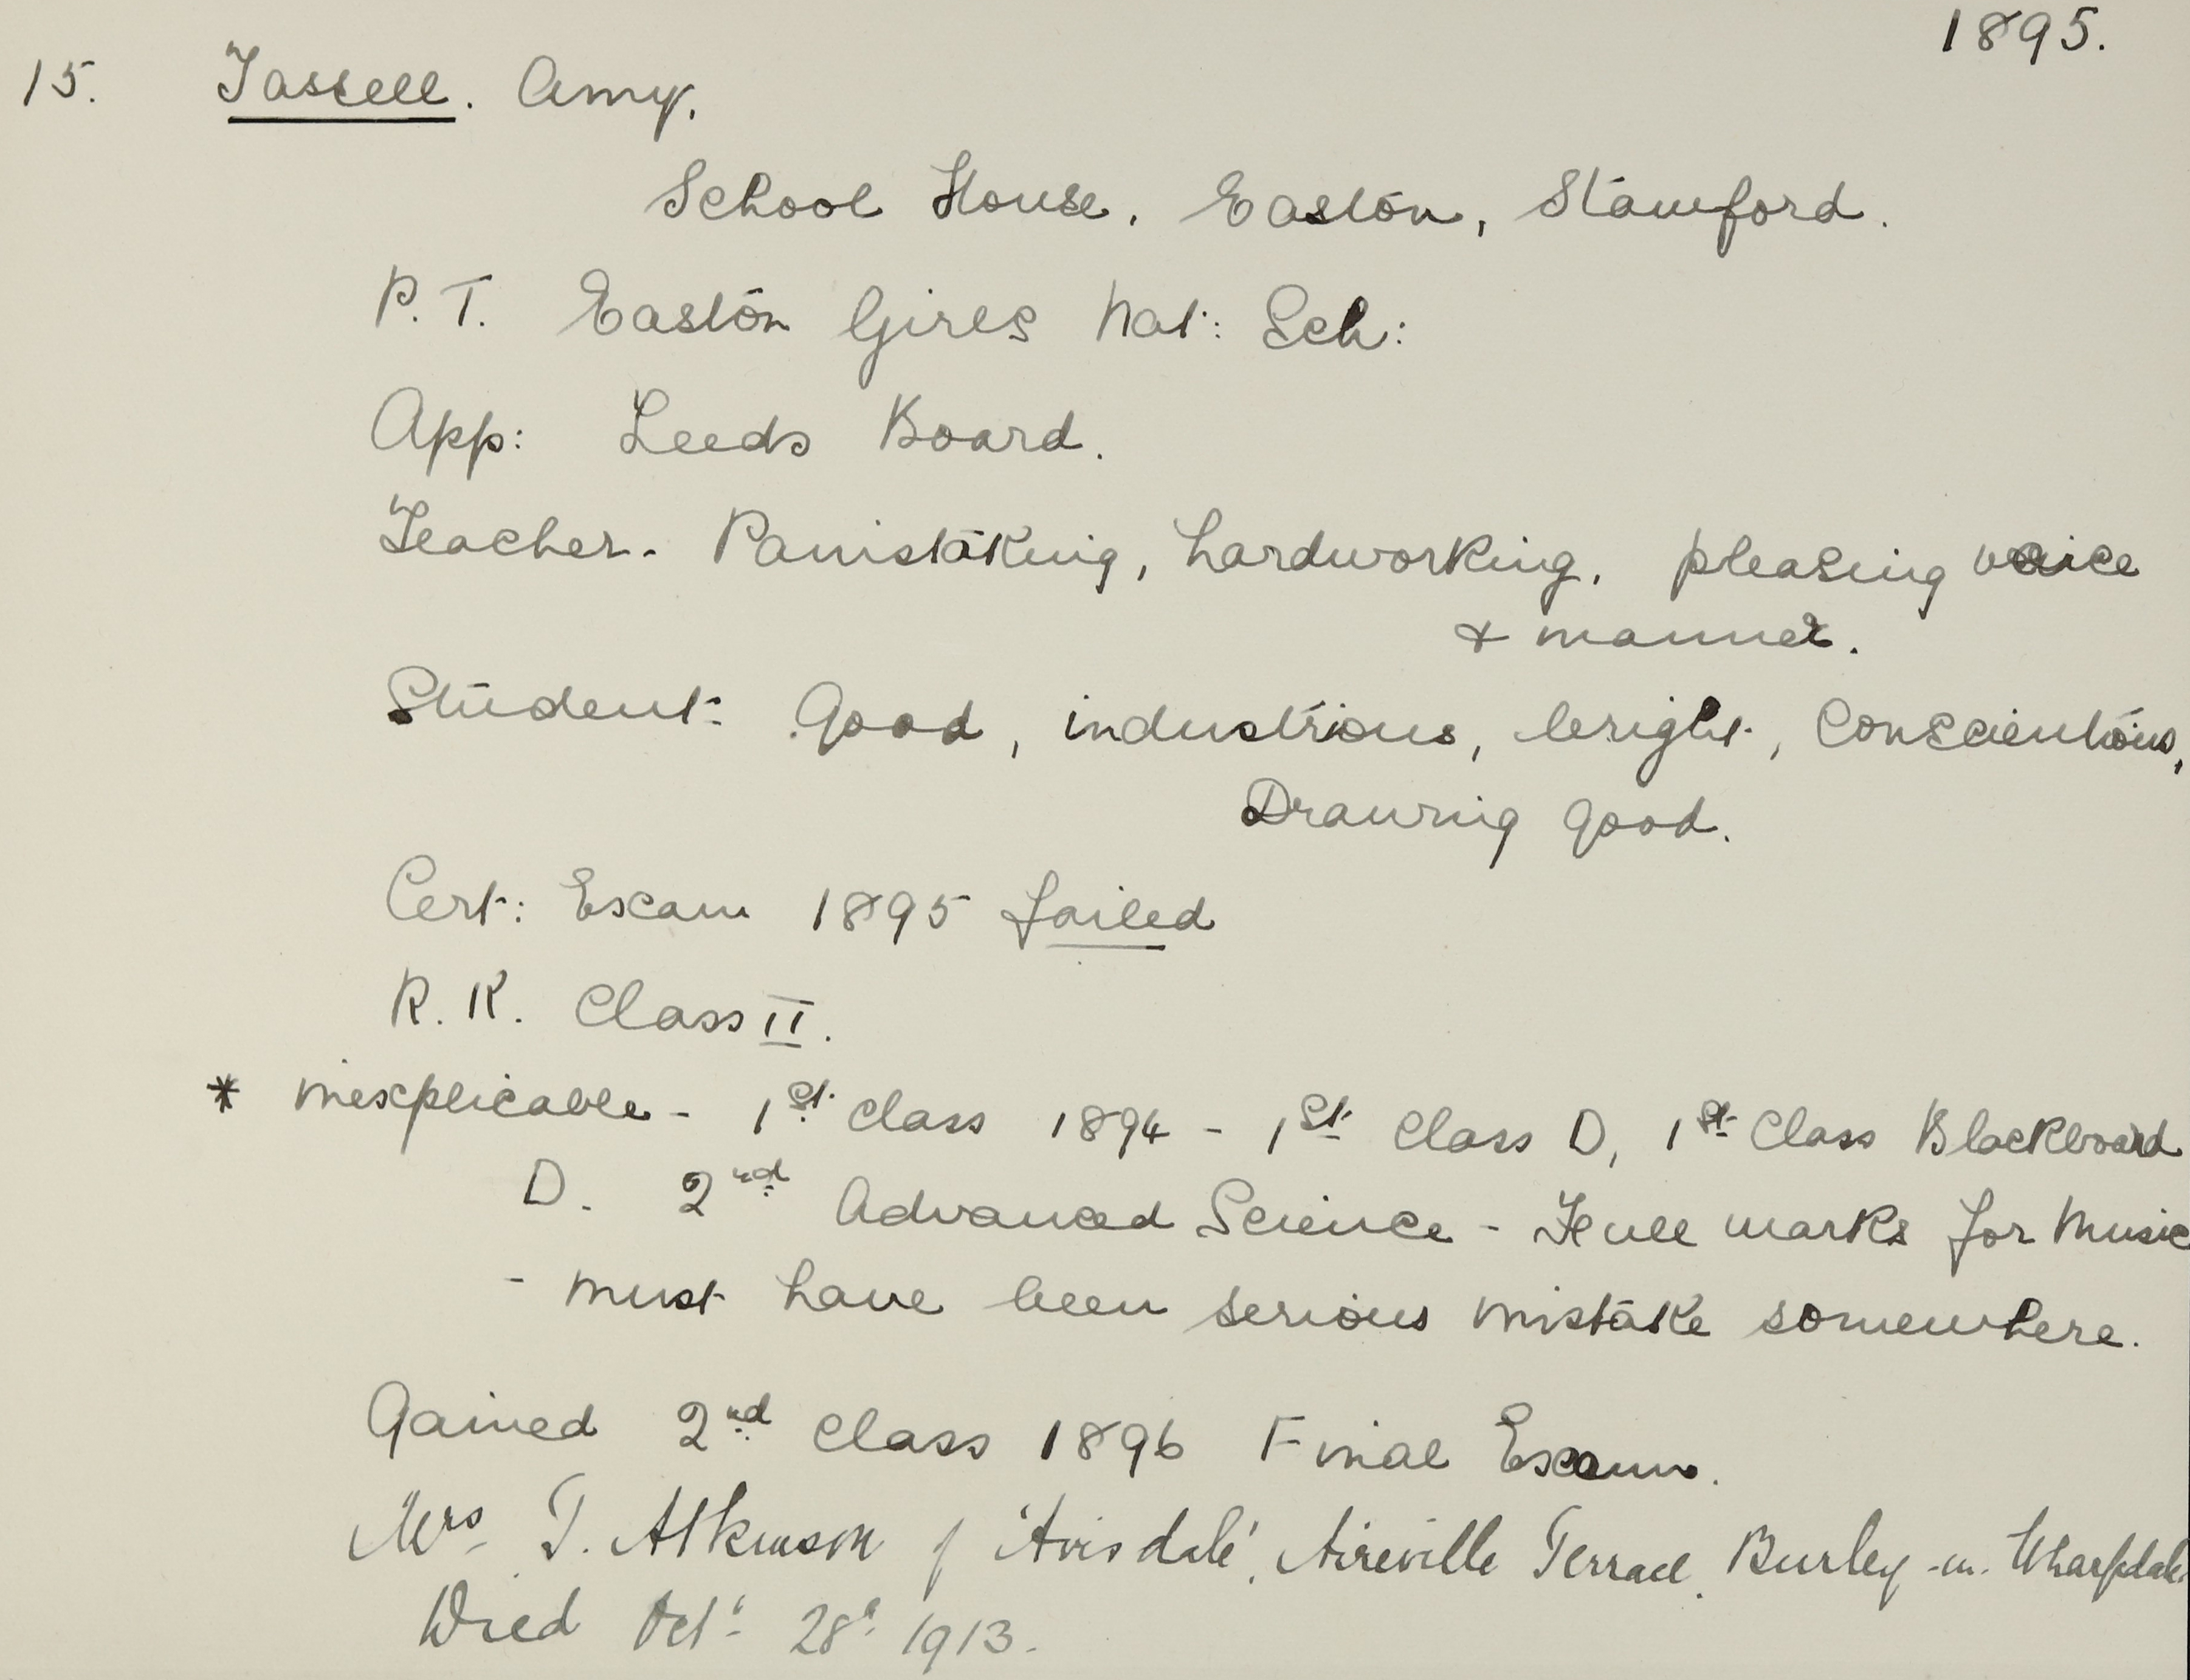 1895.
15. Tassell. Amy.
School House, Easton, Stamford.
P.T. Easton Girls Nat: Sch:
App: Leeds Board.
Teacher- Painstaking, hardworking, pleasing voice
& manner.
Student: Good, industrious, bright, conscientious,
Drawing good.
Cert: Exam 1895 failed
R.K. Class II.
* inexplicable - 1st class 1894 - 1st Class D, 1st Class Blackboard
D. 2nd Advanced Science - Full marks for Music
- must have been serious mistake somewhere.
Gained 2nd class 1896 Final Exam.
Mrs T. Atkinson of 'Avisdale', Aireville Terrace, Burley-in-Wharfedale
Died Oct: 28th 1913.